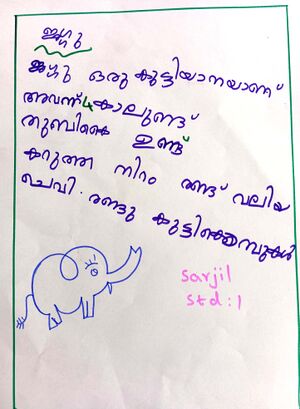 ജഗ്ഗു
ജഗ്ഗു ഒരു കുട്ടിയാനയാണ്
അവന്ന് 4 കാലുണ്ട്
തുബികൈ ഉണ്ട്
കറുത്ത നിറം രണ്ട് വലിയ
ചെവി. രണ്ടു കുട്ടിക്കൊമ്പുകൾ
sarjil
std : 1